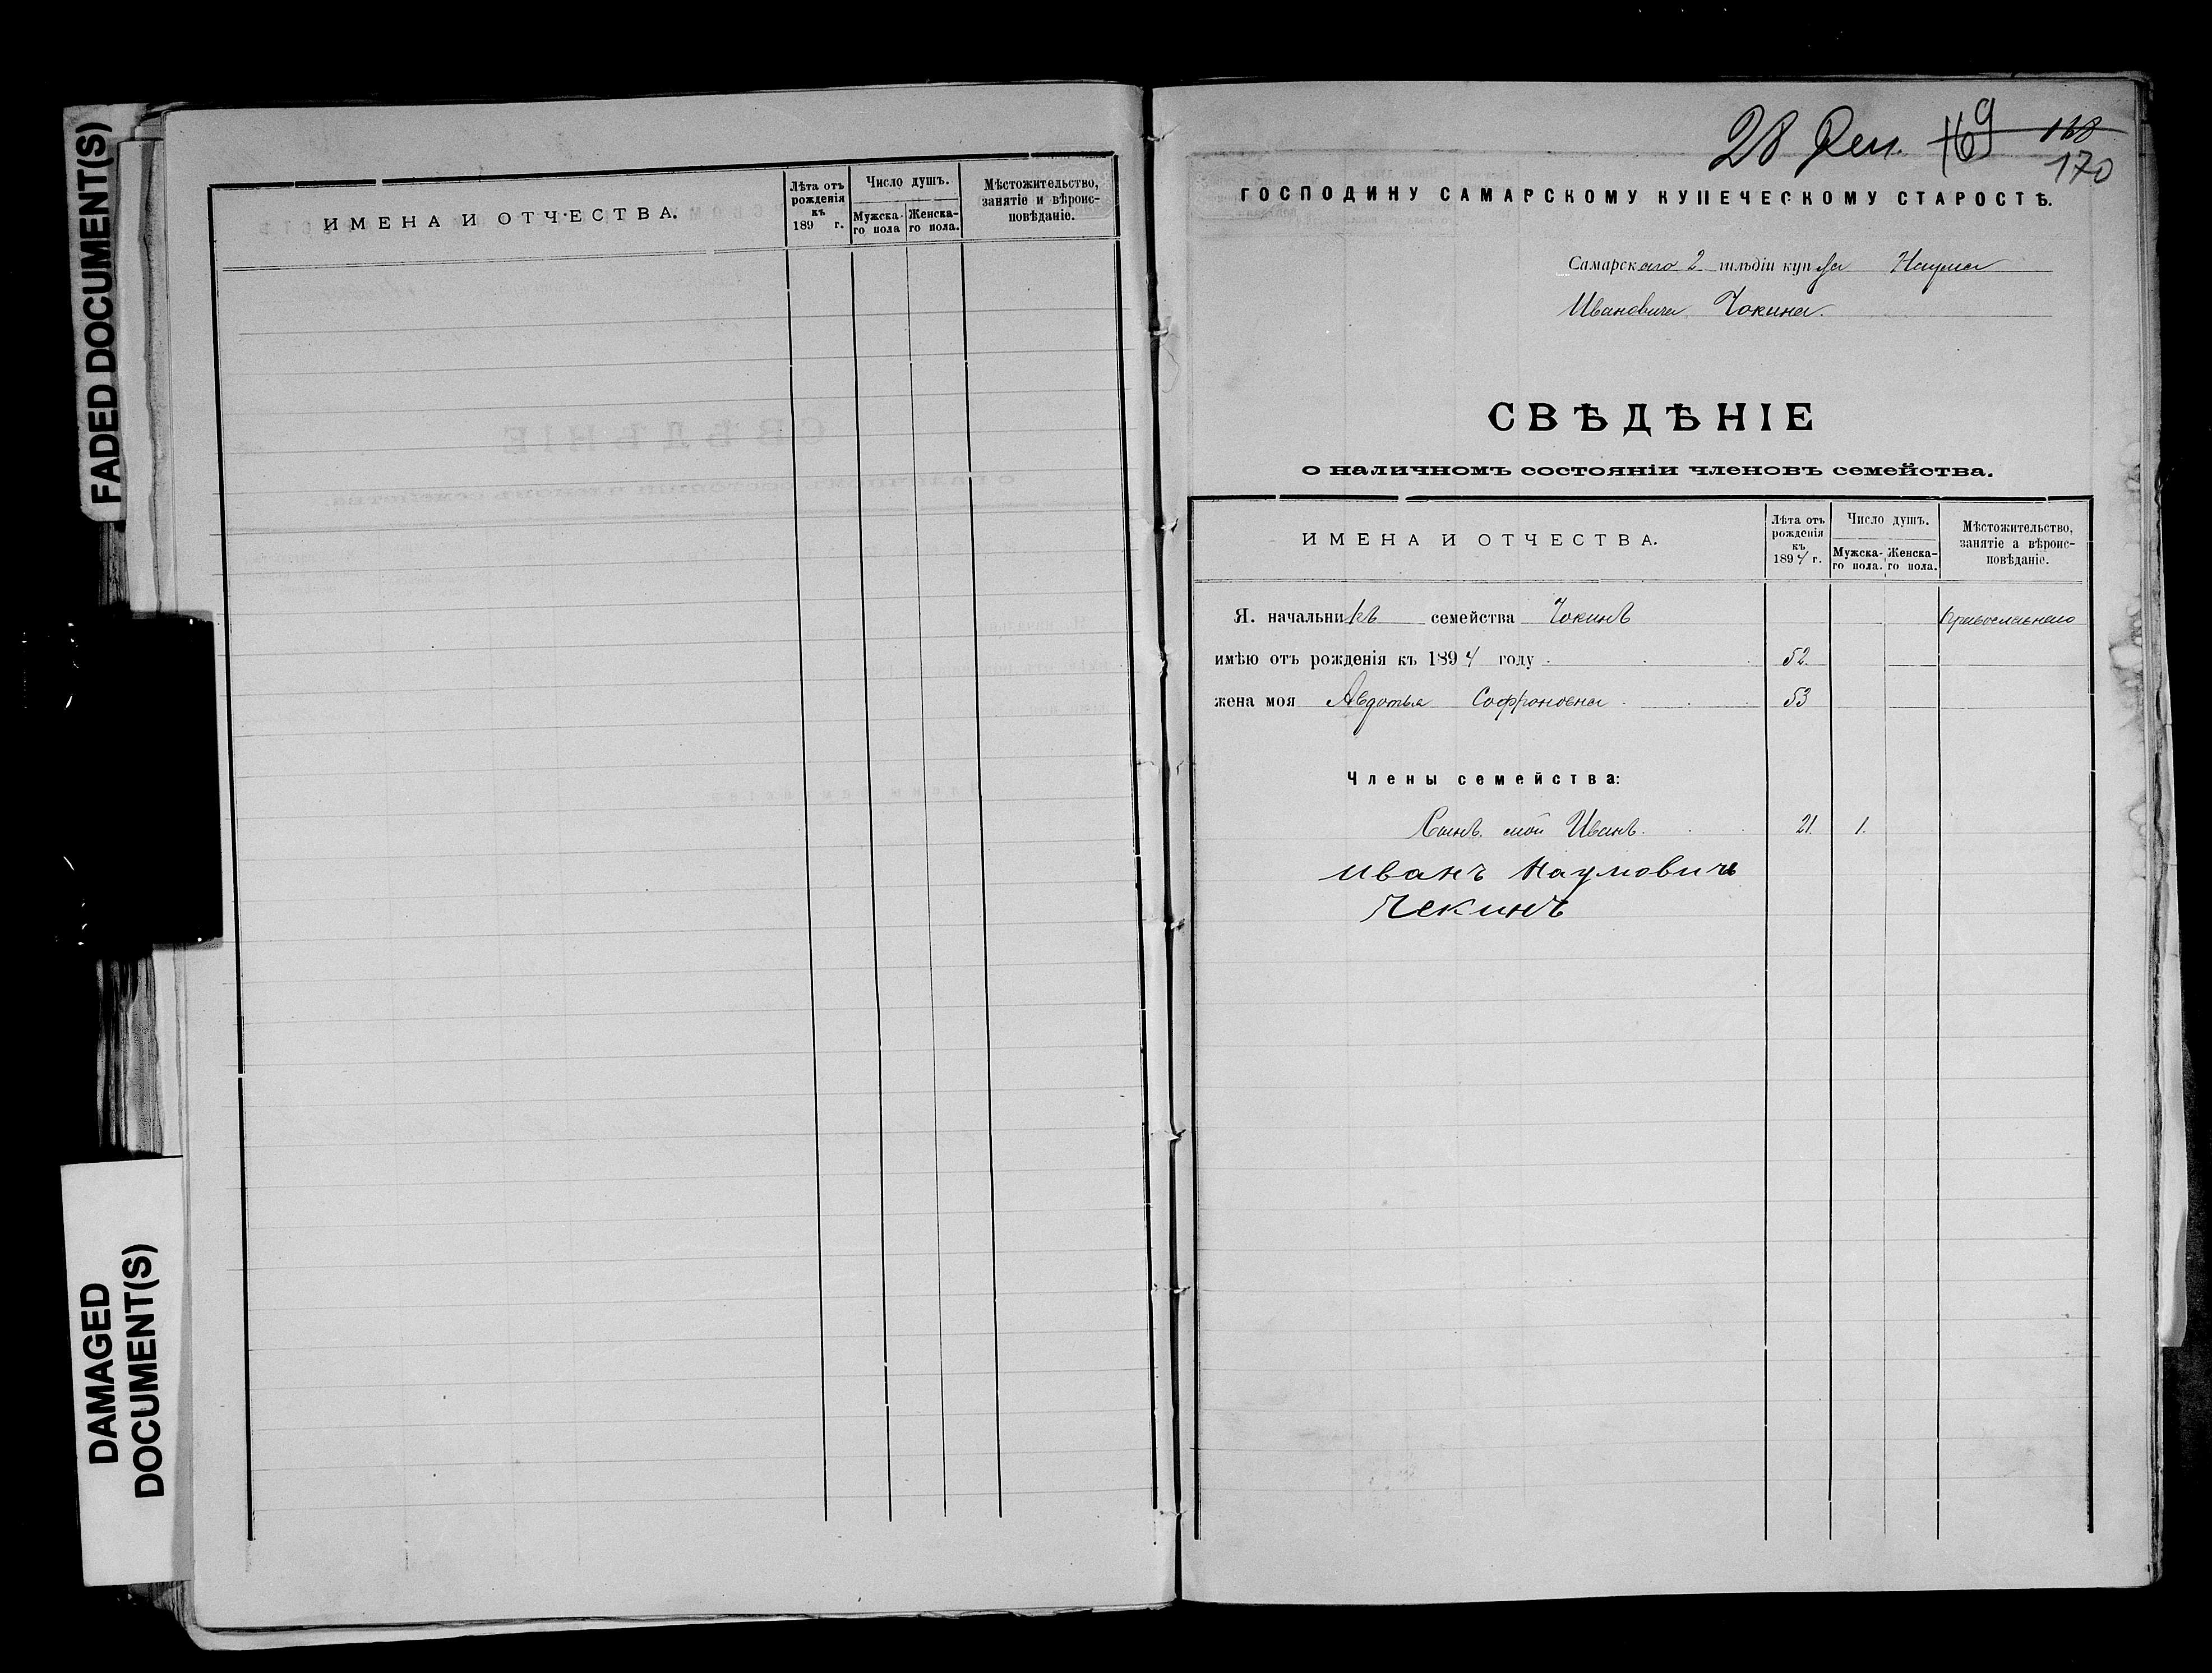 FADED DOCUMENT(S)
DAMAGED
DOCUMENT(S)
ИМЕНА И ОТЧЕСТВА.
Лѣта отъ
рожденія
къ
189 г.
Число душъ.
Мужска-
го пола
Женска-
го пола.
Мѣстожительство,
занятіе и вѣроис-
повѣданіе.
28 Дек. 169 168
170
ГОСПОДИНУ САМАРСКОМУ КУПЕЧЕСКОМУ СТАРОСТѢ.
Самарскаго 2 гильдіи купца Наума
Ивановича Чокина.
СВѢДѢНІЕ
о наличномъ состояніи членовъ семейства.
ИМЕНА И ОТЧЕСТВА.
Лѣта отъ
рожденія
къ
1894 г.
Число душъ.
Мужска-
го пола.
Женска-
го пола.
Мѣстожительство,
занятіе а вѣроис-
повѣданіе.
Я. начальникъ семейства Чокинъ Православнаго
имѣю отъ рожденія къ 1894 году 52.
жена моя Авдотья Софроновна 53
Члены семейства:
Сынъ мой Иванъ. 21. 1.
иванъ Наумовичъ
Чекинъ